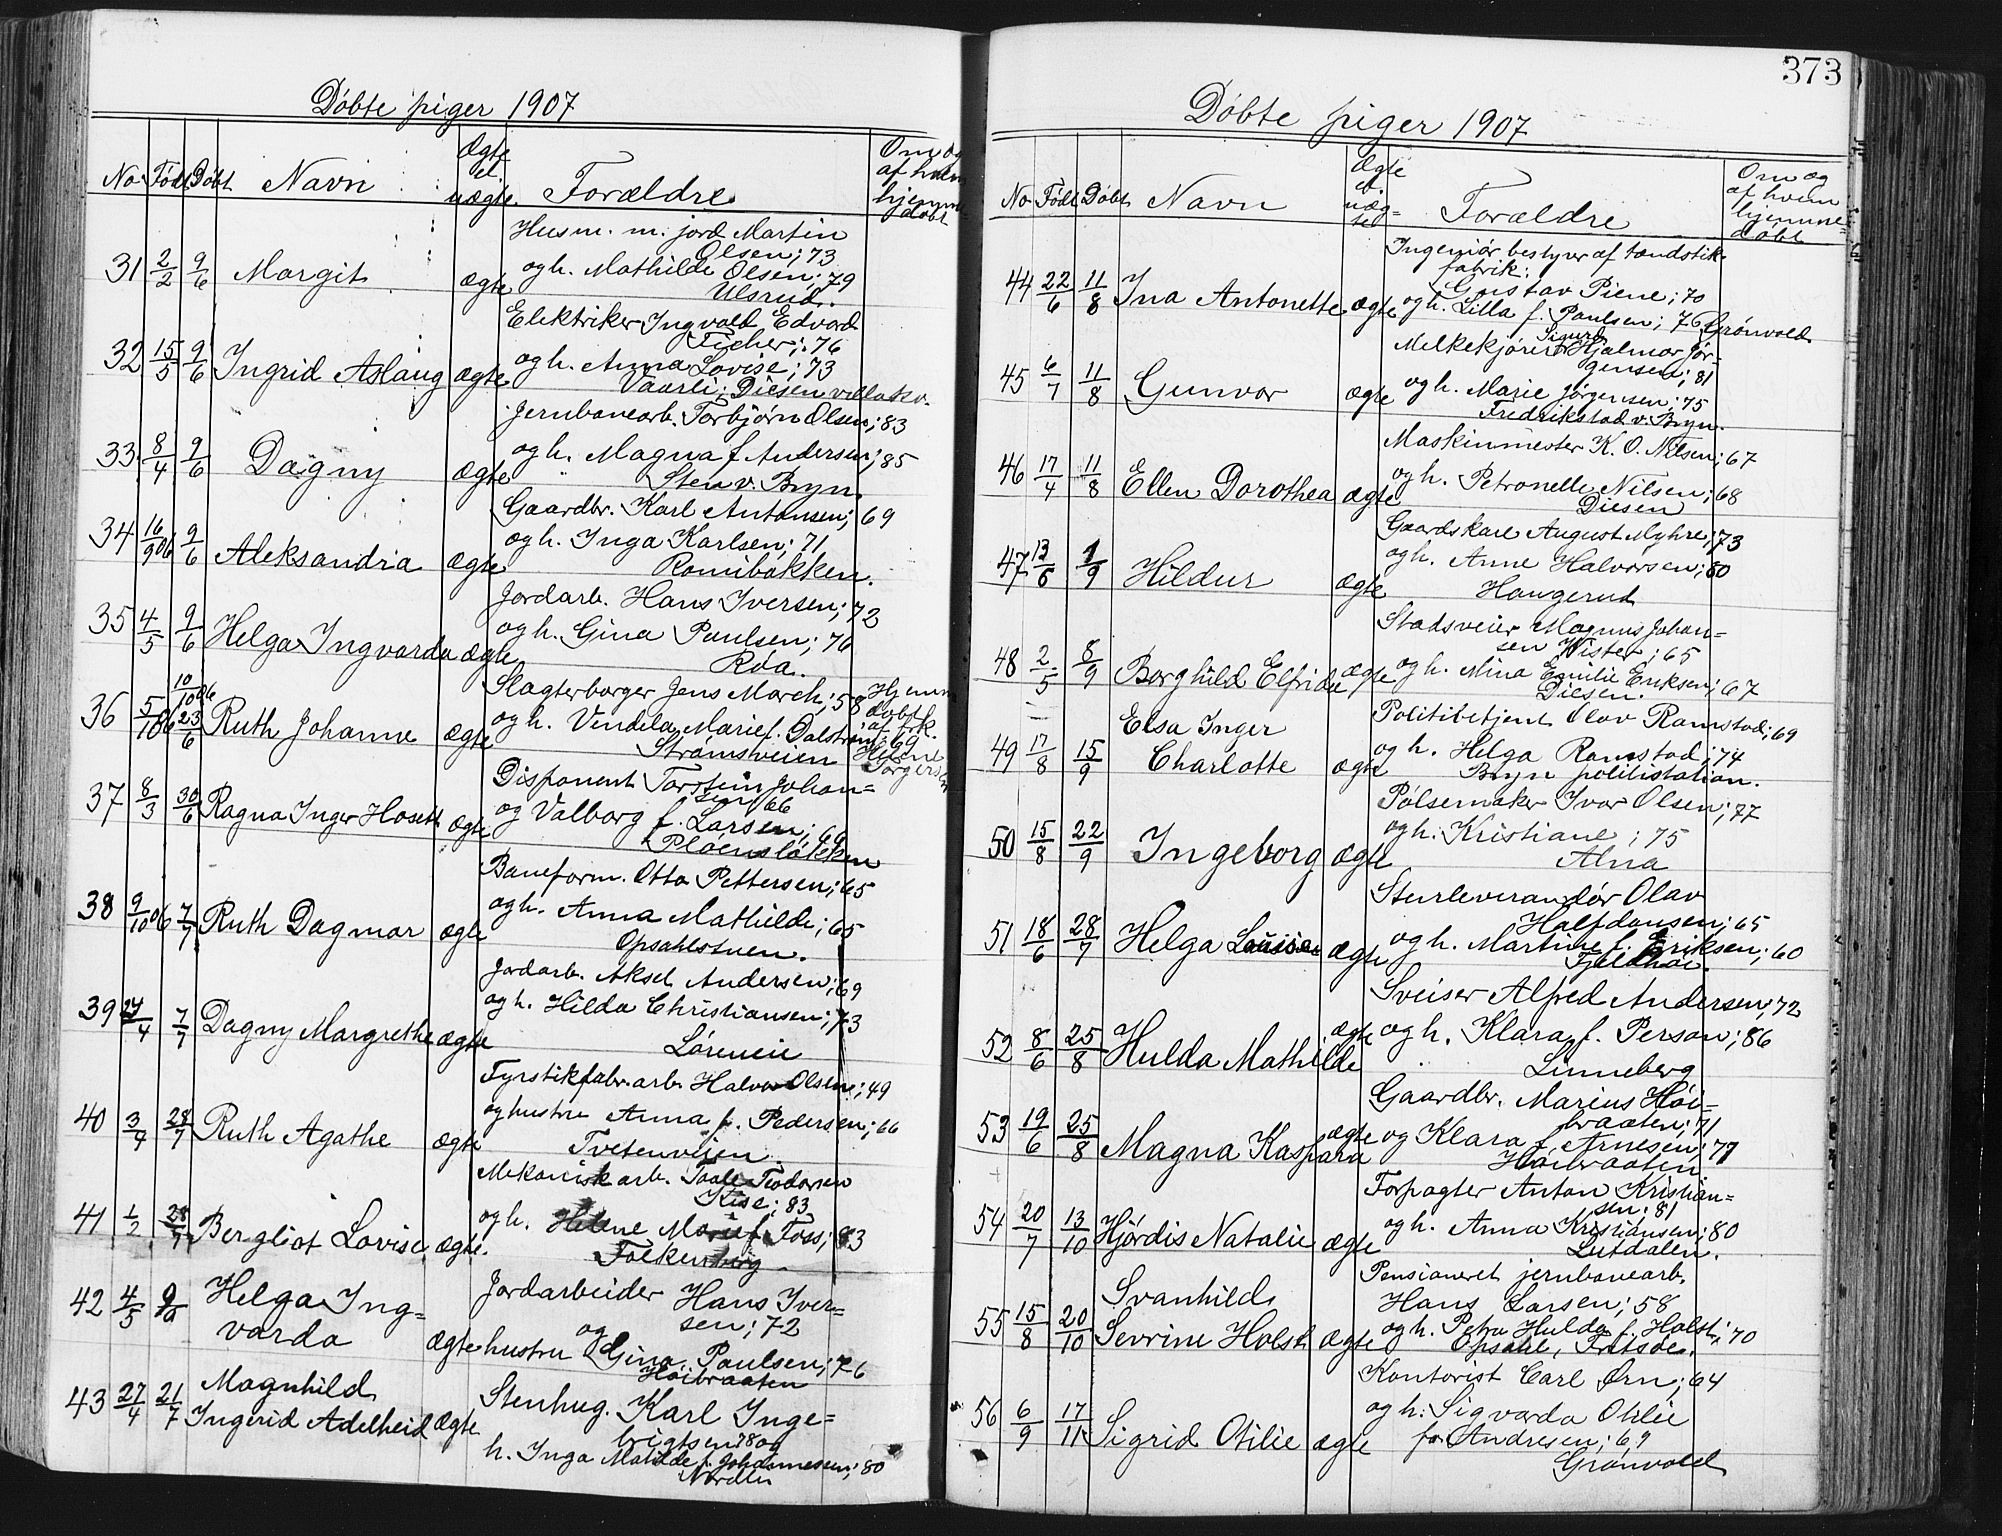 Døbte piger 1907
No. Født Døbt Navn Ægte el. uægte. Forældre Om og af hvem hjemmedøbt
Husm. m. jord Martin
Olsen; 73
31 2/2 9/6 Margit ægte og h. Mathilde Olsen; 79
Ulsrud.
Elektriker Ingvald Edvard
Ficher; 76
32 15/5 9/6 Ingrid Aslaug ægte og h. Anna Lovise; 73
Vaarli; Diesen villatsv.
Jernbanearb. Torbjørn Olsen; 83
33 8/4 9/6 Dagny ægte og h. Magna f. Andersen; 85
Sten v. Bryn.
Gaardbr. Karl Antonsen; 69
34 16/9 06 9/6 Aleksandra ægte og h. Inga Karlsen; 71
Romibakken.
Jordarb. Hans Iversen; 72
35 4/5 9/6 Helga Ingvarda ægte og h. Gina Paulsen; 76
Roa.
Slagterborger Jens March; 58
36 5/10 06 10/10 06 23/6 Ruth Johanne ægte og h. Vendela Marie f. Dalstrøm; 69
Strømsveien
Hjemmedøbt af frk. Helene Torgersen
Disponent Torstein Johansen 66
37 8/3 30/6 Ragna Inger Hosett ægte og Valborg f. Larsen; 69
Pløensløkken
Baneform. Otto Pettersen; 65
38 9/10 06 7/7 Ruth Dagmar ægte og h. Anna Mathilde; 65
Opsahlstuen.
Jordarb. Aksel Andersen; 69
39 24/4 7/7 Dagny Margrethe ægte og h. Hilda Christiansen; 73
Løreneie
Fyrstikfabr. arb. Halvor Olsen; 49
40 3/4 28/7 Ruth Agathe ægte og hustru Anna f. Pedersen; 66
Tvetenveien
Mekanisk arb. Taale Teodorsen
Kise; 83
41 1/2 28/7 Bergliot Lovise ægte. og h. Helene Marie f. Foss; 83
Folkenborg
42 4/5 9/6 Helga Ing=
varda ægte Jordarbeider Hans Iver=
sen; 72
og
hustru Gina Paulsen; 76
Høibraaten
43 27/4 21/7 Magnhild
Ingerid Adelheid ægte Stenhug. Karl Inge=
brigtsen 78 og
h. Inga Matilde f. Johannesen; 80
Nordli
373
Døbte piger 1907
No Født Døbt Navn Ægte el. uæg=te Forældre Om og af hvem hjemme=døbt
Ingeniør bestyrer af tændstik
fabrik:
Gustav Piene; 70
44 22/6 11/8 Ina Antonette ægte og h. Lilla f. Paulsen; 76 Grønvold
Sigurd
Melkekjører Hjalmar Jør=
gensen; 81
45 6/7 11/8 Gunvor ægte og h. Marie Jørgensen; 75
Fredrikstad v. Bryn.
Maskinmester K. O. Nilsen; 67
46 17/4 11/8 Ellen Dorothea ægte og h. Petronelle Nilsen; 68
Diesen
Gaardskarl August Myhre; 73
47 13/6 1/9 Hildur ægte og h. Anne Halvorsen; 80
Haugerud
Stadsveier Magnus Johan=
sen Wister; 65
48 2/5 8/9 Borghild Elfrida ægte og h. Mina Emilie Eriksen; 67
Diesen.
Politibetjent Olav Ramstad; 69
49 17/8 15/9 Elsa Inger
Charlotte ægte og h. Helga Ramstad; 74
Bryn politistation.
Pølsemaker Ivar Olsen; 77
50 15/8 22/9 Ingeborg ægte og h. Kristiane; 75
Alna
Stenleverandør Olav
Halfdansen; 65
51 18/6 28/7 Helga Louise ægte og h. Martine f. Eriksen; 60
Fjeldhøi.
Sveiser Alfred Andersen; 72
52 8/6 25/8 Hulda Mathilde ægte og h. Klara f. Person; 86
Linneberg
Gaardbr. Marius Høi=
braaten; 71
53 19/6 25/8 Magna Kaspara ægte og Klara f. Arnesen; 77
Høibraaten
Forpagter Anton Kristian=
sen; 81
54 20/7 13/10 Hjørdis Natalie ægte og h. Anna Kristiansen; 80
Lutdalen.
Pensioneret jernbanearb.
55 15/8 20/10 Svanhild
Sevrine Holst ægte Hans Larsen; 58
og h. Petra Hulda f. Holst; 70
Opsahl, Fritsøe.
Kontorist Carl Ørn; 64
56 6/9 17/11 Sigrid Otilie ægte og h. Sigvarda Otilie
fø Andresen; 69
Grønvold